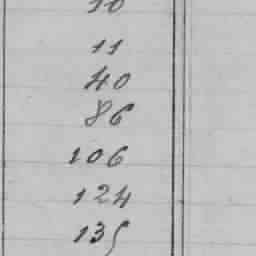 10
11
40
86
106
124
135